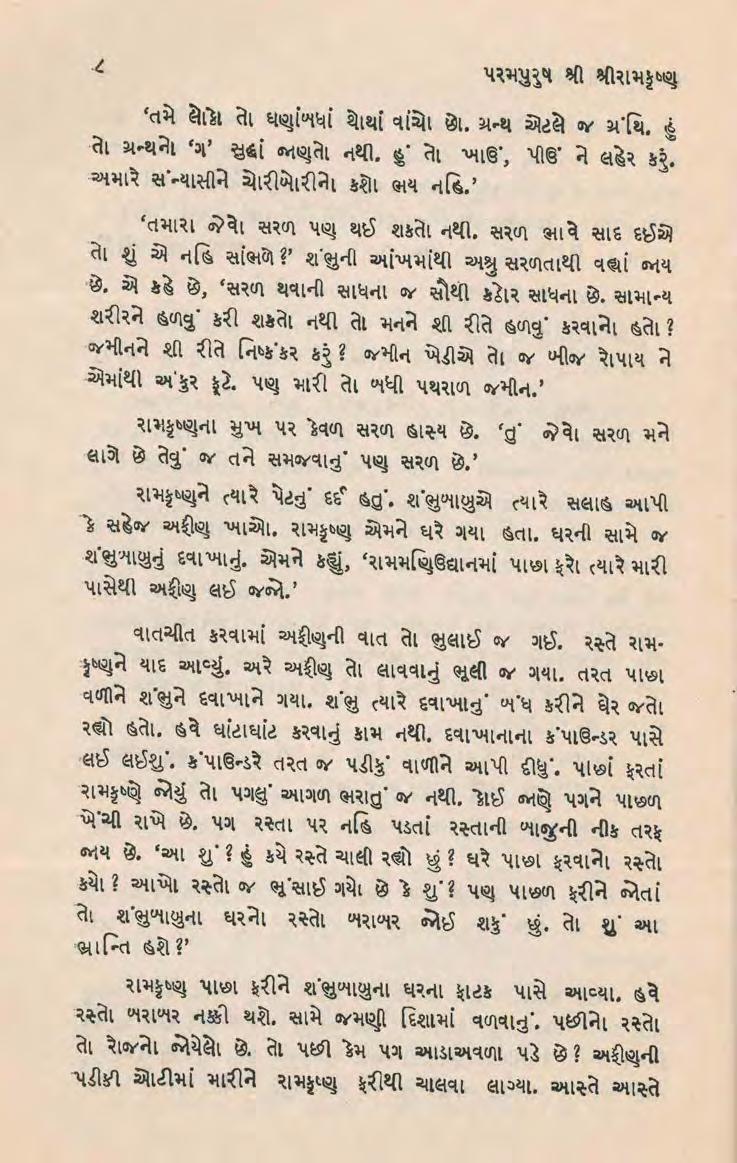 ૮
પરમપુરુષ શ્રી શ્રીરામકૃષ્ણ
‘તમે લોકો તો ઘણાંબધાં થોથાં વાંચો છો. ગ્રન્થ એટલે જ ગ્રંથિ. હું
તો ગ્રન્થનો ‘ગ’ સુદ્ધાં જાણતો નથી. હું તો ખાઉં, પીઉં ને લહેર કરું.
અમારે સંન્યાસીને ચોરીબોરીનો કશો ભય નહિ.’
‘તમારા જેવો સરળ પણ થઈ શકતો નથી. સરળ ભાવે સાદ દઈએ
તો શું એ નહિ સાંભળે?’ શંભુની આંખમાંથી અશ્રુ સરળતાથી વહ્યાં જાય
છે. એ કહે છે, ‘સરળ થવાની સાધના જ સૌથી કઠોર સાધના છે. સામાન્ય
શરીરને હળવું કરી શકતો નથી તો મનને શી રીતે હળવું કરવાનો હતો?
જમીનને શી રીતે નિષ્કંકર કરું? જમીન ખેડીએ તો જ બીજ રોપાય ને
એમાંથી અંકુર ફૂટે. પણ મારી તો બધી પથરાળ જમીન.’
રામકૃષ્ણના મુખ પર કેવળ સરળ હાસ્ય છે. ‘તું જેવો સરળ મને
લાગે છે તેવું જ તને સમજવાનું પણ સરળ છે.’
રામકૃષ્ણને ત્યારે પેટનું દર્દ હતું. શંભુબાબુએ ત્યારે સલાહ આપી
કે સહેજ અફીણ ખાઓ. રામકૃષ્ણ એમને ઘરે ગયા હતા. ઘરની સામે જ
શંભુબાબુનું દવાખાનું. એમને કહ્યું, ‘રામમણિઉદ્યાનમાં પાછા ફરો ત્યારે મારી
પાસેથી અફીણ લઈ જજો.’
વાતચીત કરવામાં અફીણની વાત તો ભુલાઈ જ ગઈ. રસ્તે રામ-
કૃષ્ણને યાદ આવ્યું. અરે અફીણ તો લાવવાનું ભૂલી જ ગયા. તરત પાછા
વળીને શંભુને દવાખાને ગયા. શંભુ ત્યારે દવાખાનું બંધ કરીને ઘેર જતો
રહ્યો હતો. હવે ઘાંટાઘાંટ કરવાનું કામ નથી. દવાખાનાના કંપાઉન્ડર પાસે
લઈ લઈશું. કંપાઉન્ડરે તરત જ પડીકું વાળીને આપી દીધું. પાછાં ફરતાં
રામકૃષ્ણે જોયું તો પગલું આગળ ભરાતું જ નથી. કોઈ જાણે પગને પાછળ
ખેંચી રાખે છે. પગ રસ્તા પર નહિ પડતાં રસ્તાની બાજુની નીક તરફ
જાય છે. ‘આ શું? હું કયે રસ્તે ચાલી રહ્યો છું? ઘરે પાછા ફરવાનો રસ્તો
કયો? આખો રસ્તો જ ભૂંસાઈ ગયો છે કે શું? પણ પાછળ ફરીને જોતાં
તો શંભુબાબુના ઘરનો રસ્તો બરાબર જોઈ શકું છું. તો શું આ
ભ્રાન્તિ હશે?’
રામકૃષ્ણ પાછા ફરીને શંભુબાબુના ઘરના ફાટક પાસે આવ્યા. હવે
રસ્તો બરાબર નક્કી થશે. સામે જમણી દિશામાં વળવાનું. પછીનો રસ્તો
તો રોજનો જોયેલો છે. તો પછી કેમ પગ આડાઅવળા પડે છે? અફીણની
પડીકી ઓટીમાં મારીને રામકૃષ્ણ ફરીથી ચાલવા લાગ્યા. આસ્તે આસ્તે